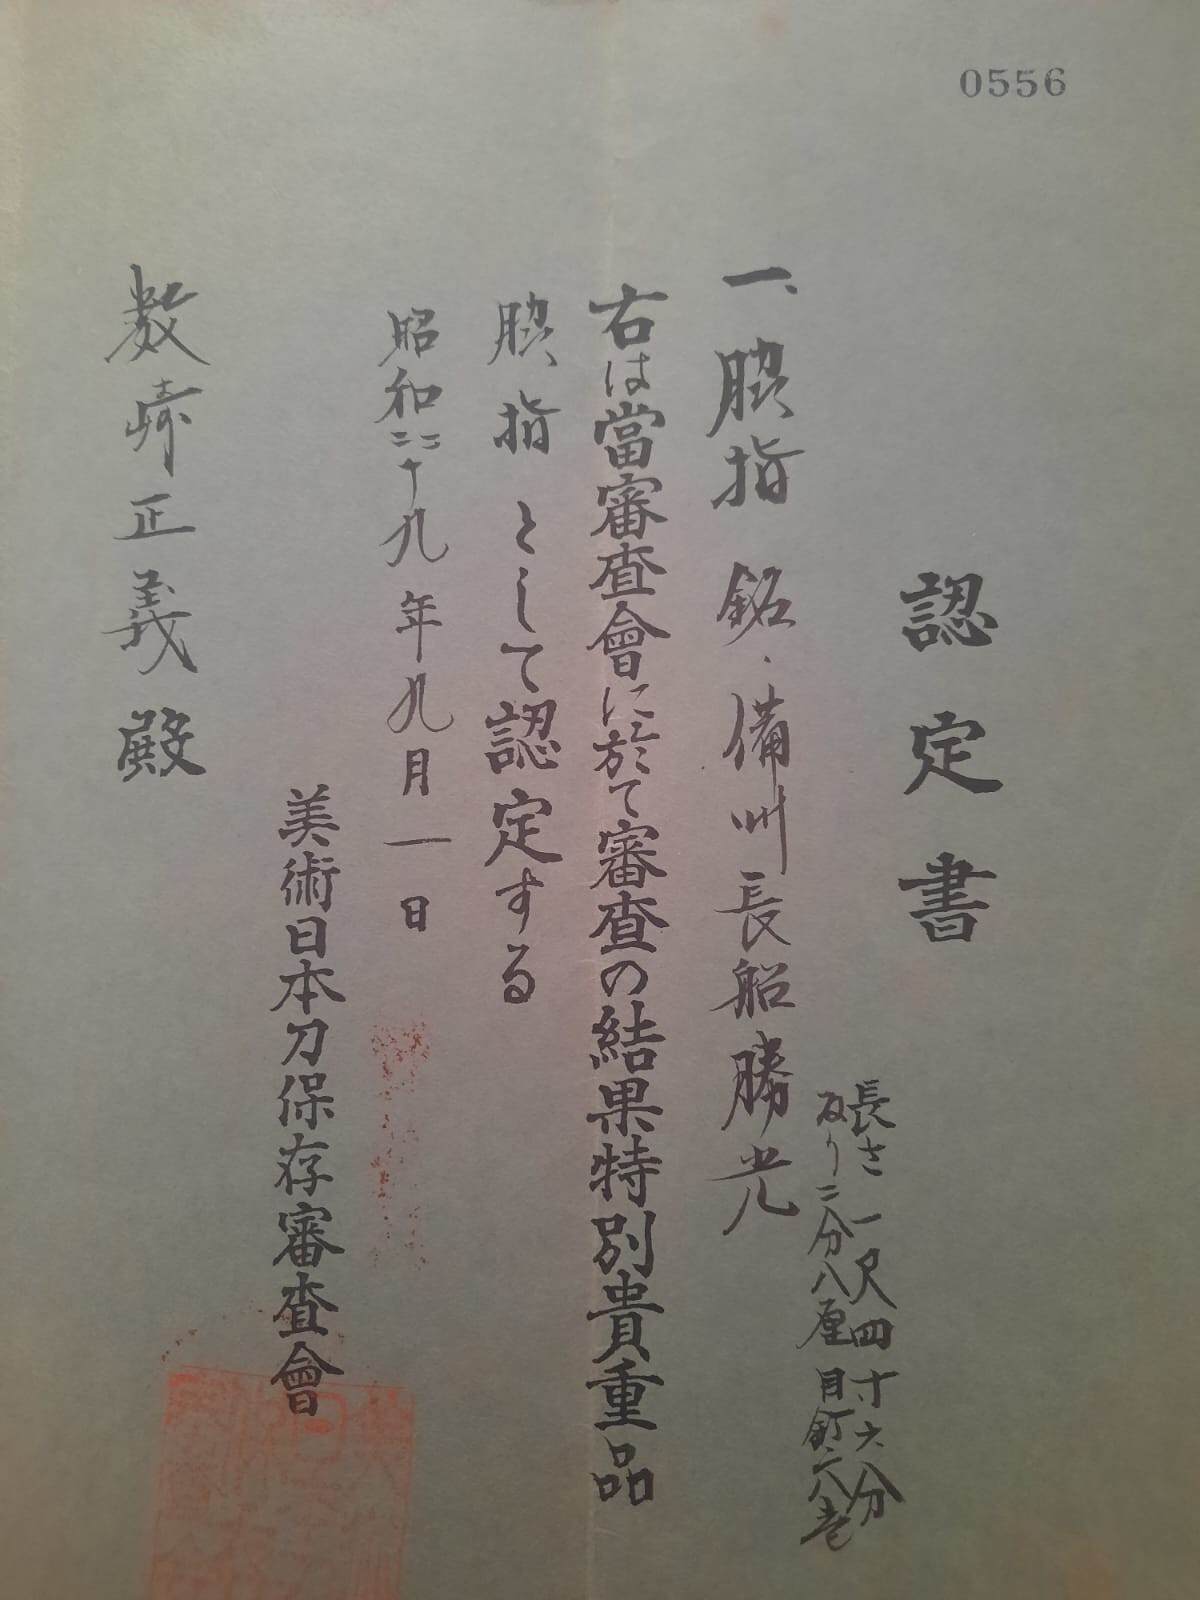 0556
認定書
長さ 一尺四寸六分
反り二分八厘 目釘穴壱
一、脇指 銘、備州長船勝光
右は當審査會に於て審査の結果特別貴重品
脇指 として認定する
昭和二十九年九月一日
美術日本刀保存審査會
正義殿